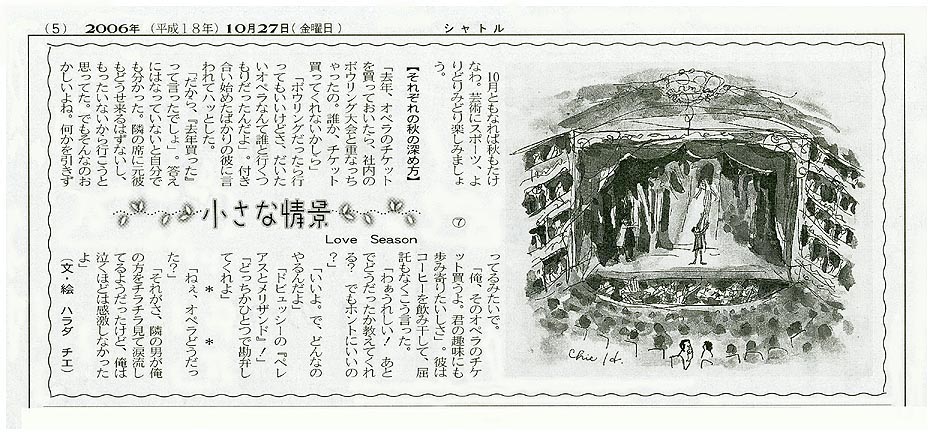 (5) 2006年 (平成18年) 10月27日(金曜日)
シャトル
10月ともなれば秋もたけ
なわ。芸術にスポーツ、よ
りどりみどり楽しみましょ
う。
【それぞれの秋の深め方】
「去年、オペラのチケット
を買っておいたら、社内の
ボウリング大会と重なっち
ゃったの。誰か、チケット
買ってくれないかしら」
「ボウリングだったら行
ってもいいけどさ、だいた
いオペラなんて誰と行くつ
もりだったんだよ」。付き
合い始めたばかりの彼に言
われてハッとした。
「だから、『去年買った』
って言ったでしょ」。答え
にはなっていないと自分で
も分かった。隣の席に元彼
もどうせ来るはずないし、
もったいないから行こうと
思ってた。でもそんなのお
かしいよね。何かを引きず
小さな情景
⑦
Love Season
ってるみたいで。
「俺、そのオペラのチケ
ット買うよ。君の趣味にも
歩み寄りたいしさ」。彼は
コーヒーを飲み干して、屈
託もなくこう言った。
「わぁうれしい！ あと
でどうだったか教えてくれ
る？ でもホントにいいの
？」
「いいよ。で、どんなの
やるんだよ」
「ドビュッシーの『ペレ
アスとメリザンド』！」
「どっちかひとつで勘弁し
てくれよ」
＊ ＊
「ねぇ、オペラどうだっ
た？」
「それがさ、隣の男が俺
の方をチラチラ見て涙流し
てるようだったけど、俺は
泣くほどは感激しなかった
よ」
（文・絵 ハラダ チエ）
Chie H.